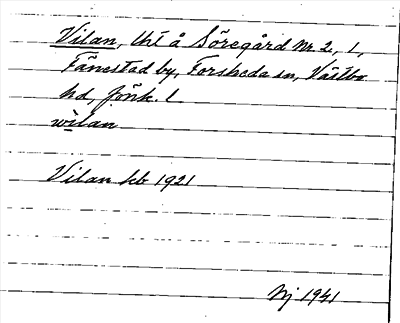 Vilan, Uht å Söregård Nr. 2, 1,
Tånestad by, Forsheda sn, Västbo
hd, Jönk. l
wìlan
Vilan kb 1921
Nj 1941